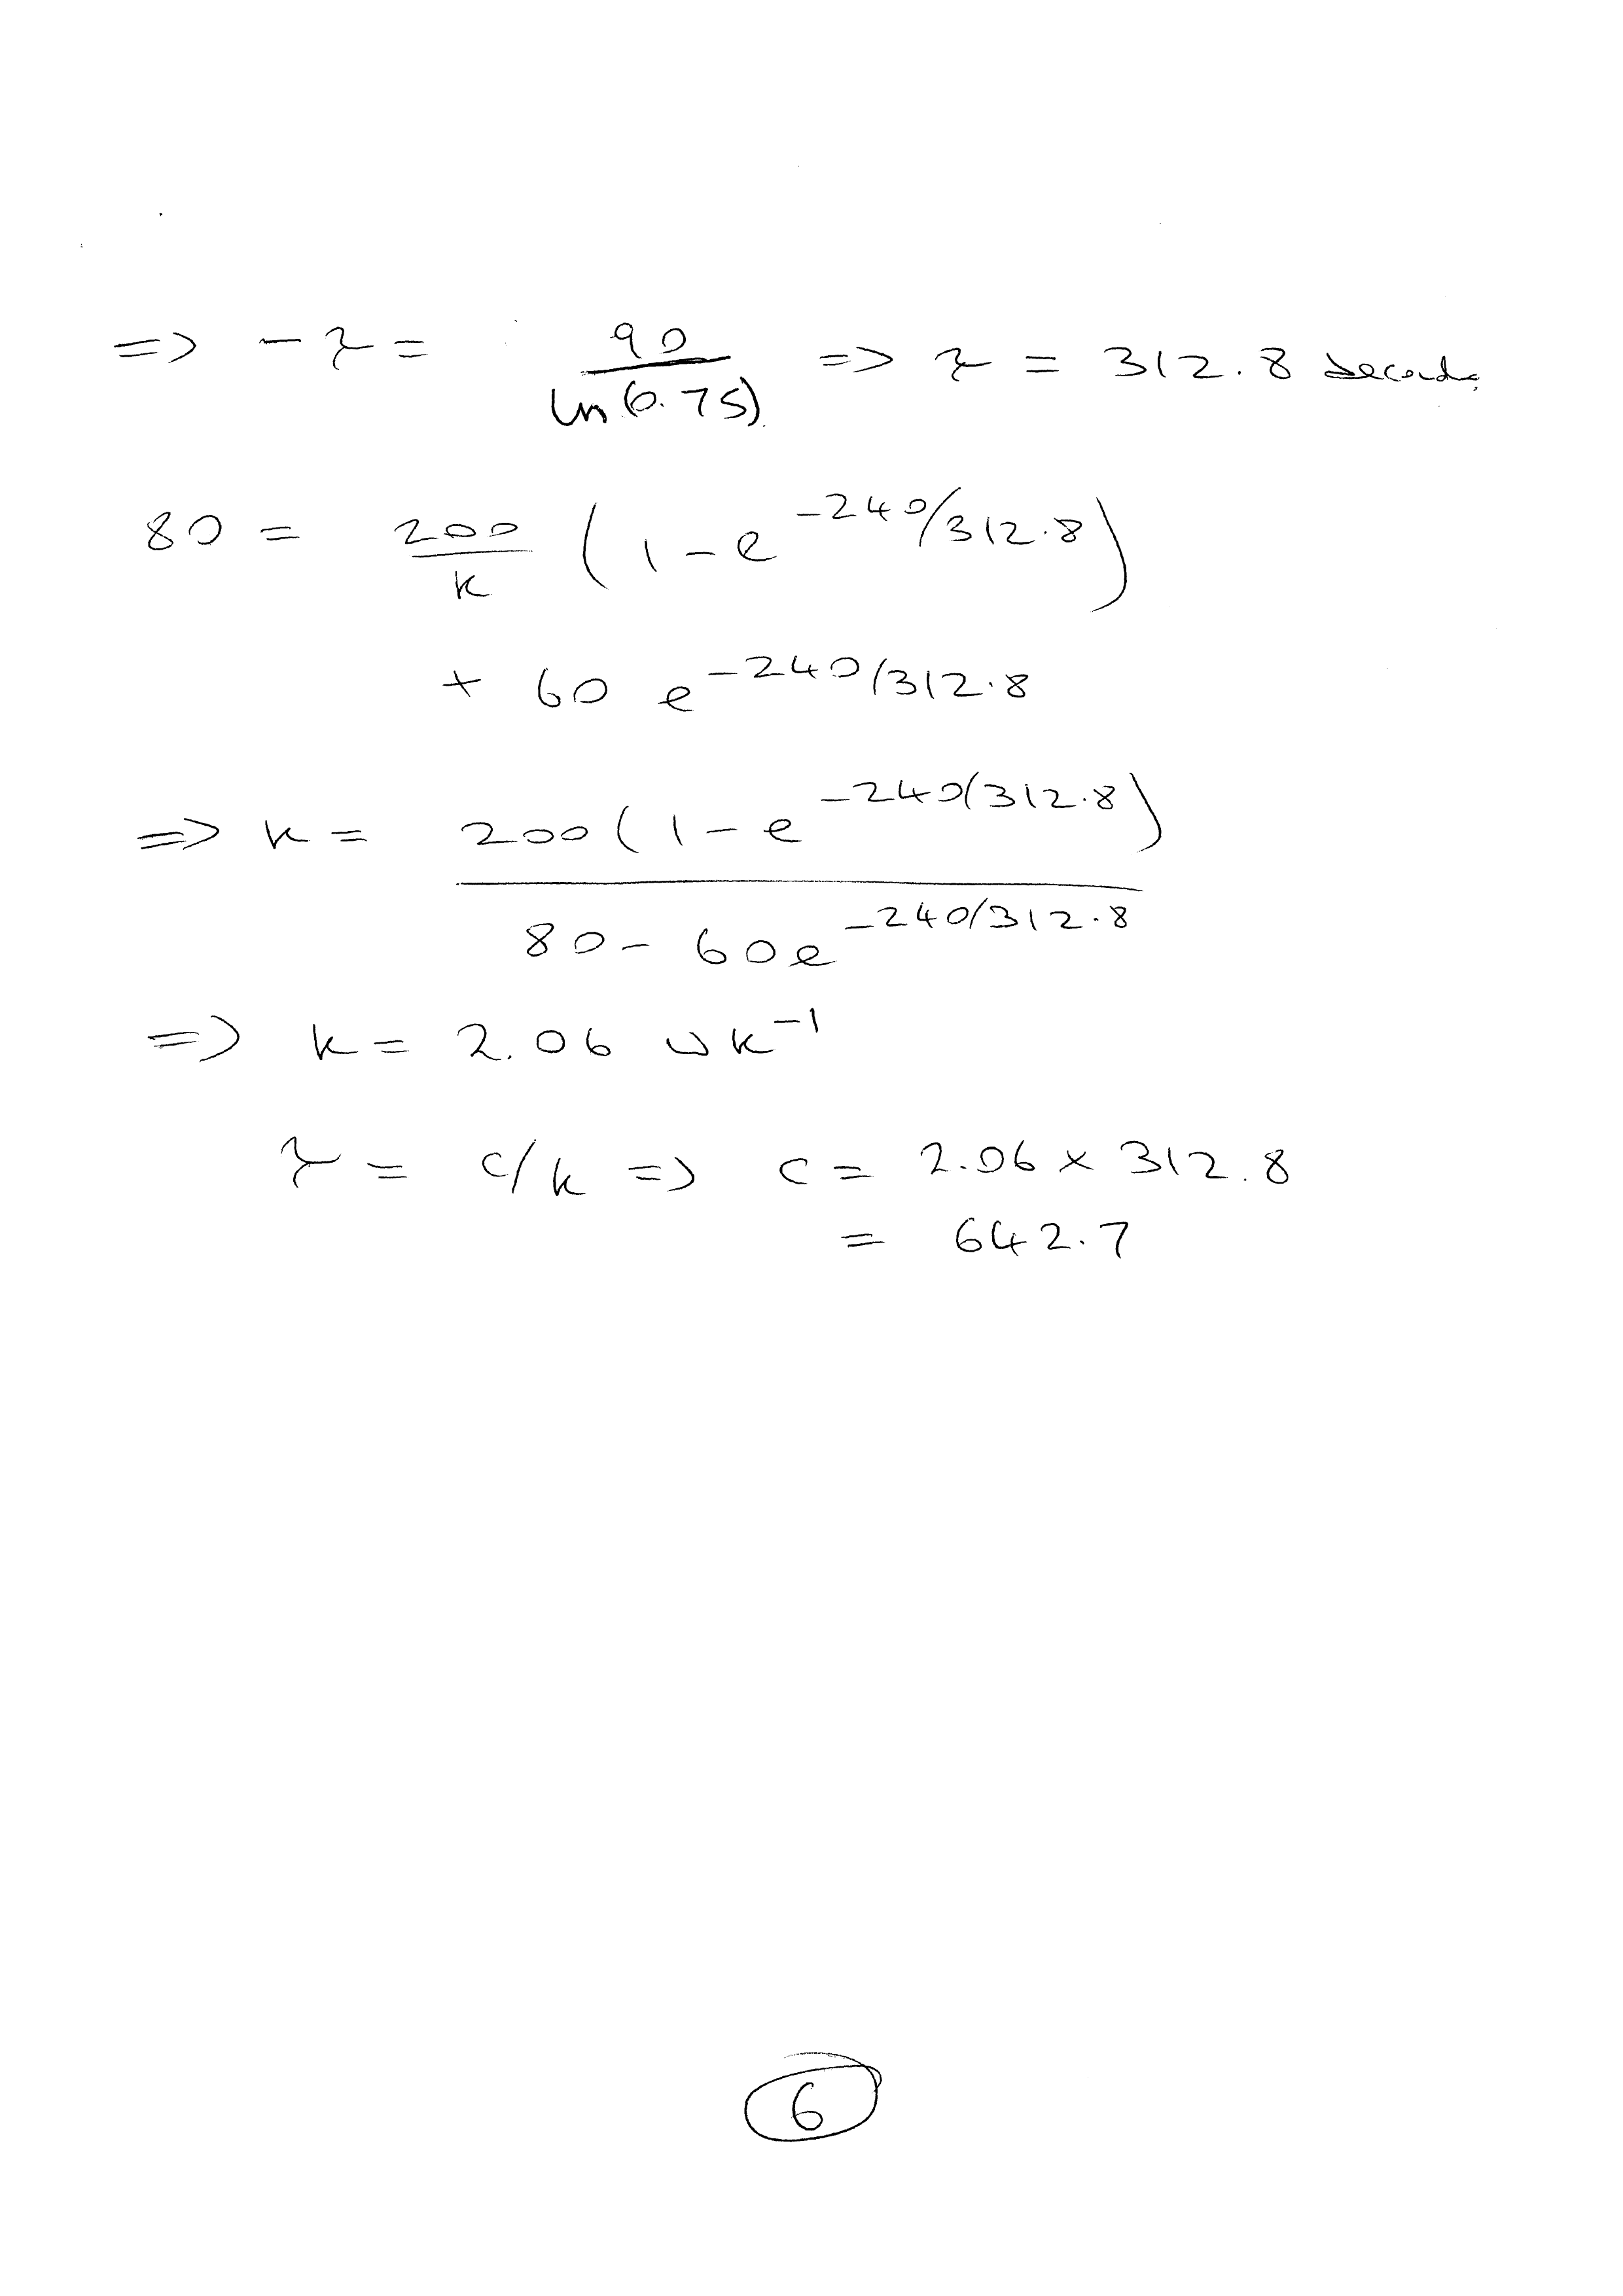 => -τ = 90/ln(0.75) => τ = 312.8 seconds
80 = 200/k (1 - e^{-240/312.8})
+ 60 e^{-240/312.8}
=> k = 200(1 - e^{-240/312.8}) / 80 - 60e^{-240/312.8}
=> k = 2.06 WK^{-1}
τ = c/k => c = 2.06 × 312.8
= 642.7
6